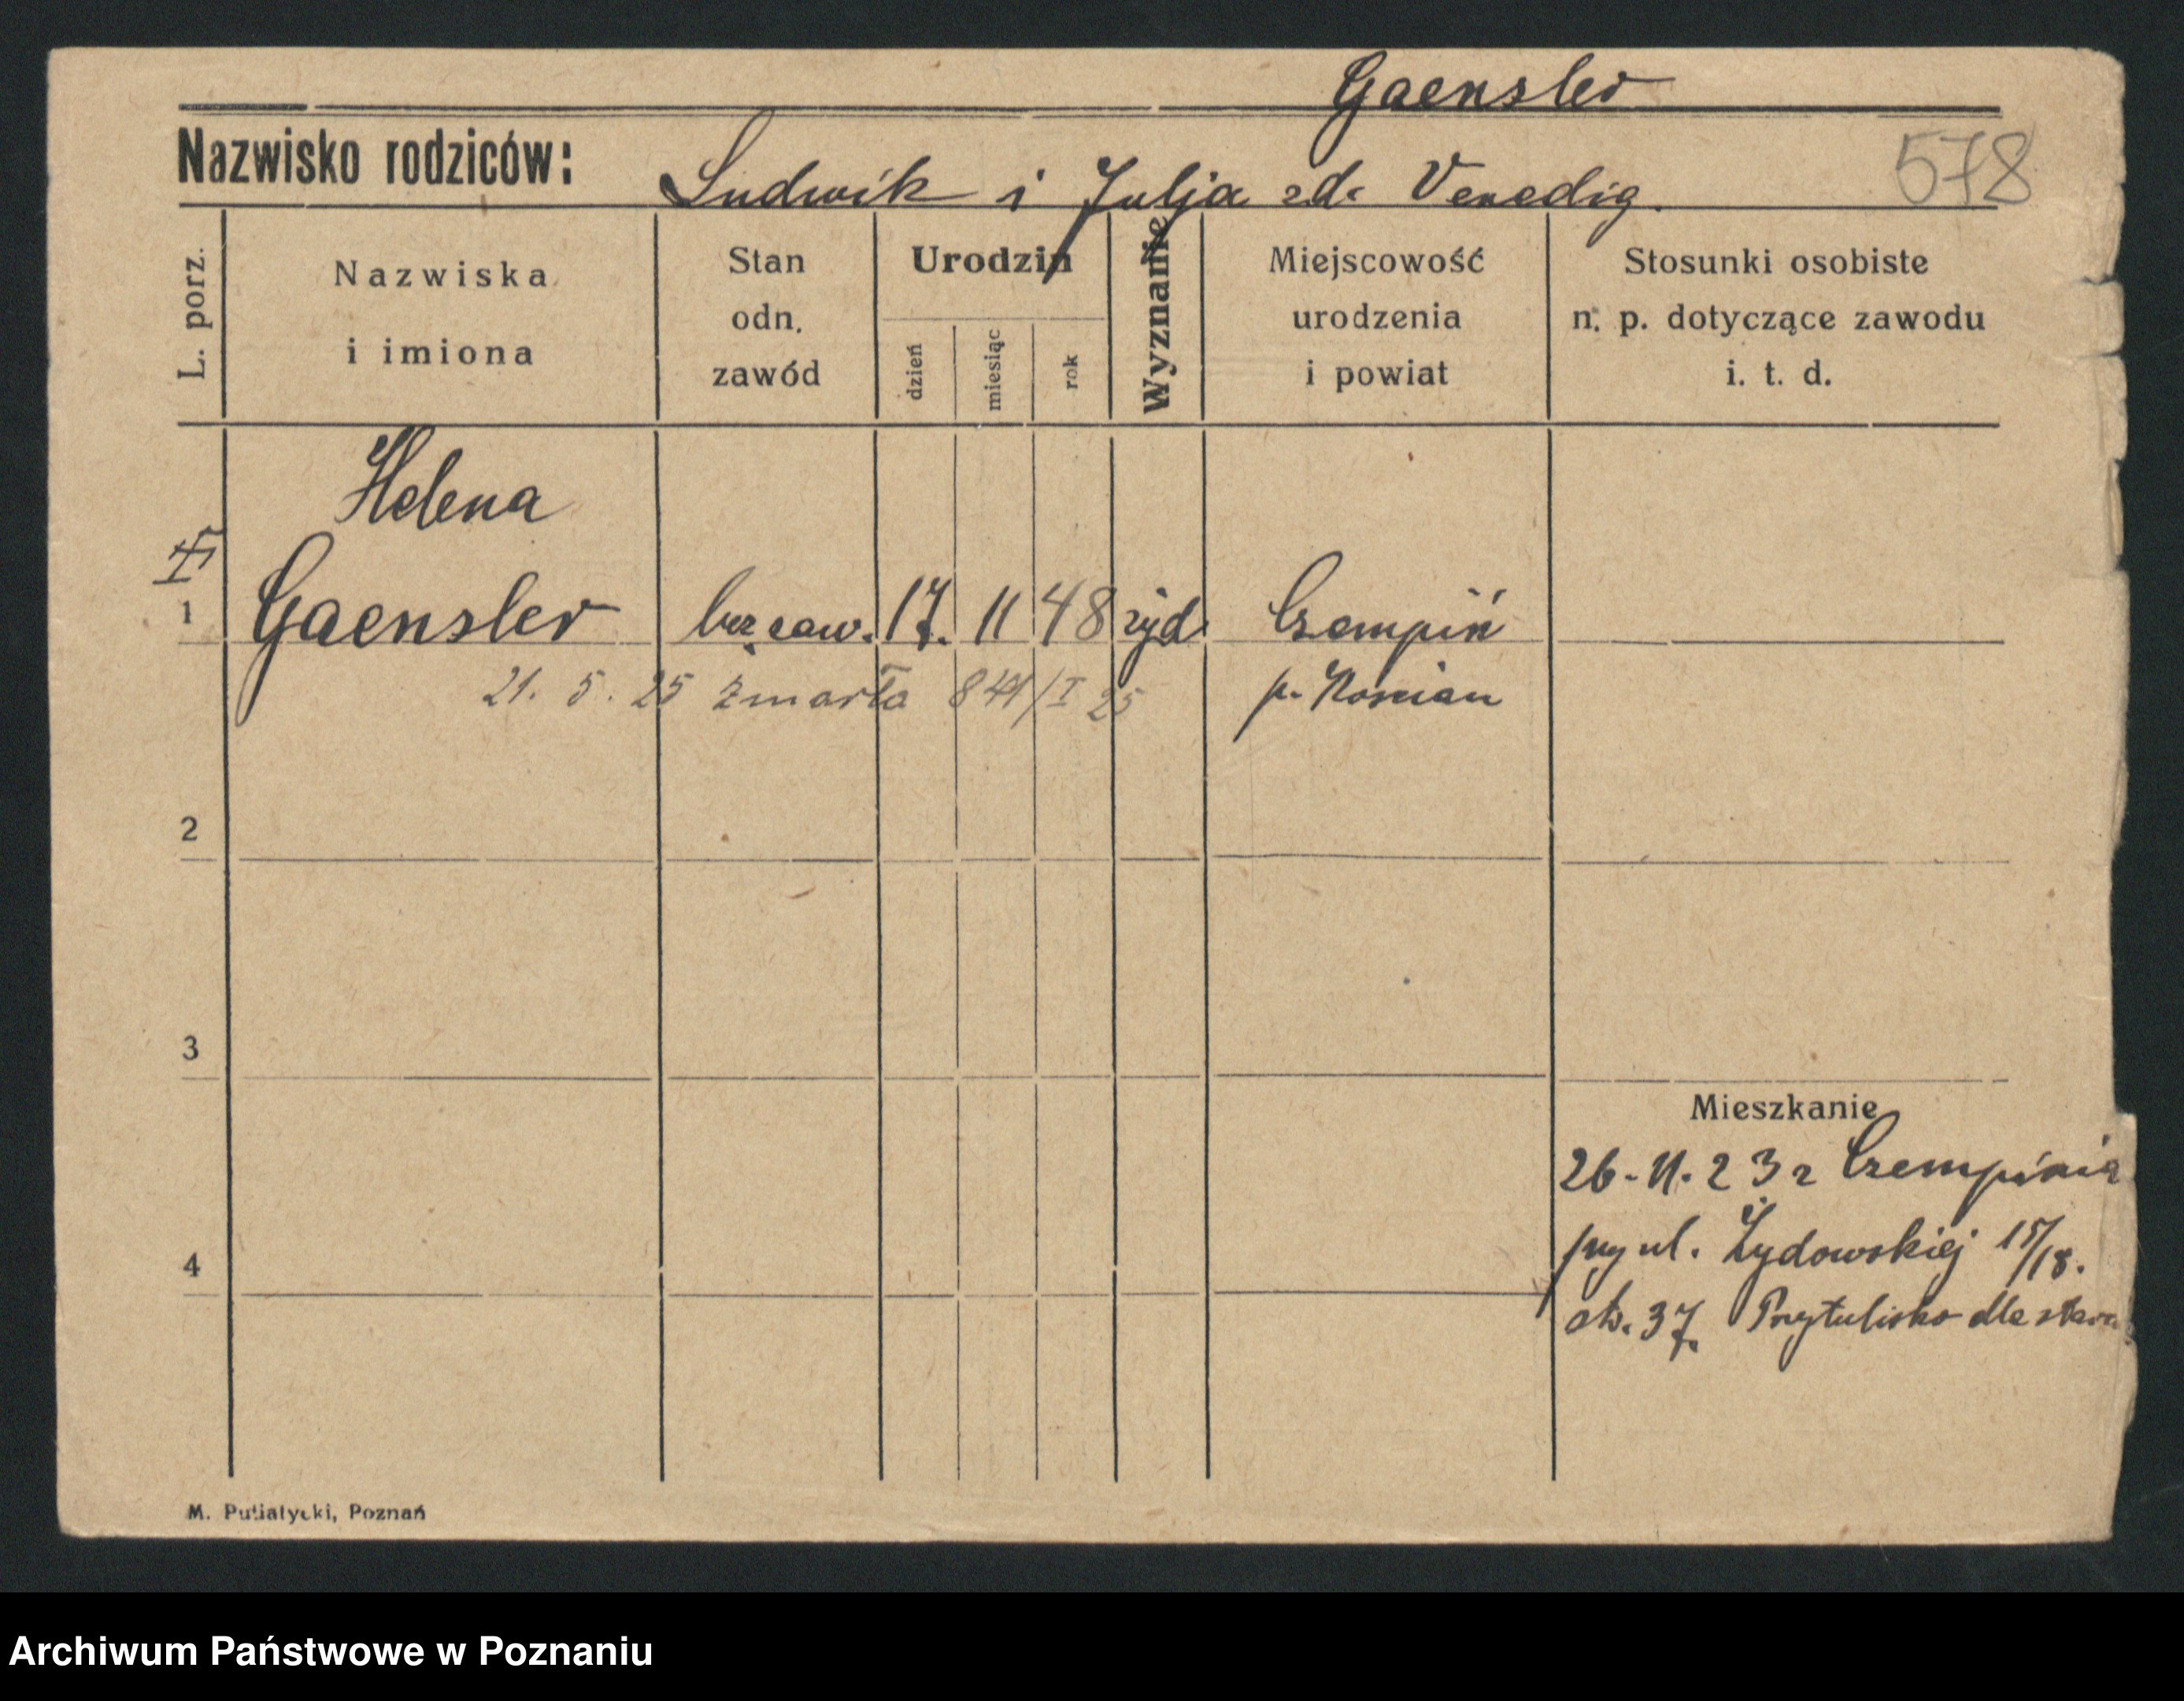 Gaensler
Nazwisko rodziców: Ludwik i Julja zd. Venedig.
578
L. porz.
Nazwiska i imiona
Stan odn. zawód
Urodzin
dzień
miesiąc
rok
Wyznanie
Miejscowość urodzenia i powiat
Stosunki osobiste n. p. dotyczące zawodu i. t. d.
Helena
1 Gaensler bez zaw. 17. 11 48 żyd. Czempiń
21. 5. 25 zmarła 25 p. Kościan
2
3
Mieszkanie
26-11-23 z Czempinia
przy ul. Żydowskiej 15/18.
4
otw. 37. Przytulisko dla
M. Putiatycki, Poznań
Archiwum Państwowe w Poznaniu